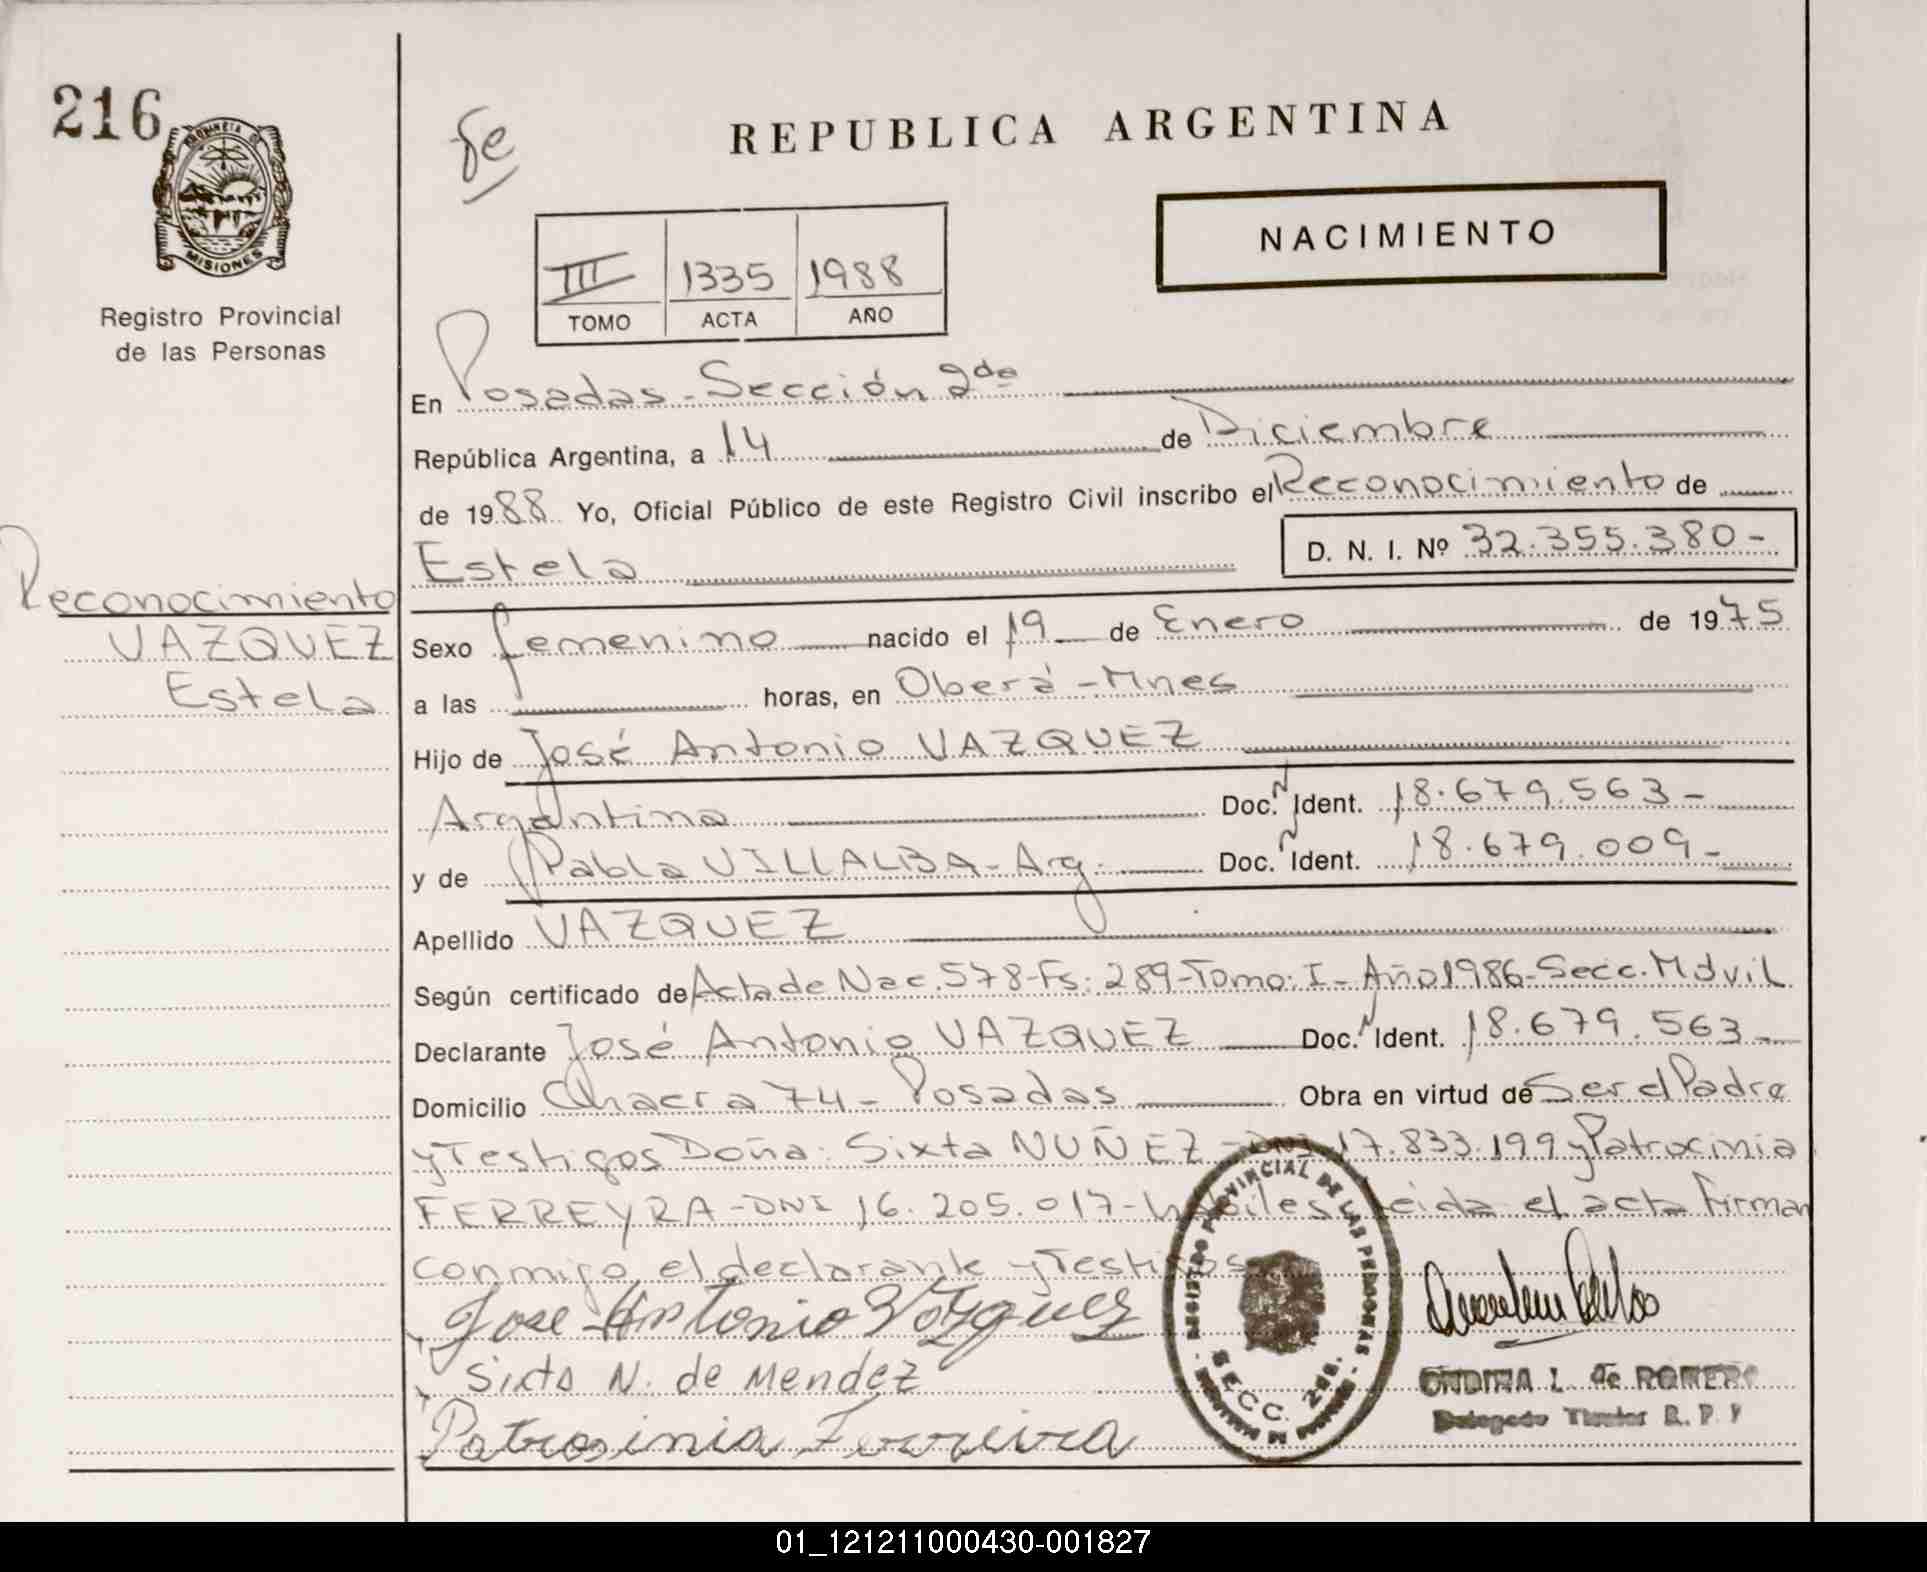 216
fe
REPUBLICA ARGENTINA
PROVINCIA DE MISIONES
NACIMIENTO
III 1335 1988
TOMO ACTA AÑO
Registro Provincial
de las Personas
En Posadas - Sección 2da
República Argentina, a 14 de Diciembre
de 1988 Yo, Oficial Público de este Registro Civil inscribo el Reconocimiento de
Estela D. N. I. Nº 32.355.380-
Reconocimiento
VAZQUEZ
Estela
Sexo femenino nacido el 19 de Enero de 1975
a las horas, en Oberá - Mnes
Hijo de José Antonio VAZQUEZ
Argentino Doc. N Ident. 18.679.563-
y de Pabla VILLALBA - Arg. Doc. N Ident. 18.679.009-
Apellido VAZQUEZ
Según certificado de Acta de Nac. 578-Fs: 289-Tomo: I - Año 1986-Secc. Móvil
Declarante José Antonio VAZQUEZ Doc. N Ident. 18.679.563-
Domicilio Chacra 74 - Posadas Obra en virtud de Ser el Padre
y Testigos Doña: Sixta NUÑEZ - DNI 17.833.199 y Patrocinia
FERREYRA - DNI 16.205.017 - hábiles leida el acta Firman
conmigo el declarante y Testigos
Jose Antonio Vazquez
Sixta N. de Mendez
Patrosinia Ferreira
REGISTRO PROVINCIAL DE LAS PERSONAS
SECC. 2da.
ONDINA L. de ROMERO
Delegado Titular R. P. P
01_121211000430-001827